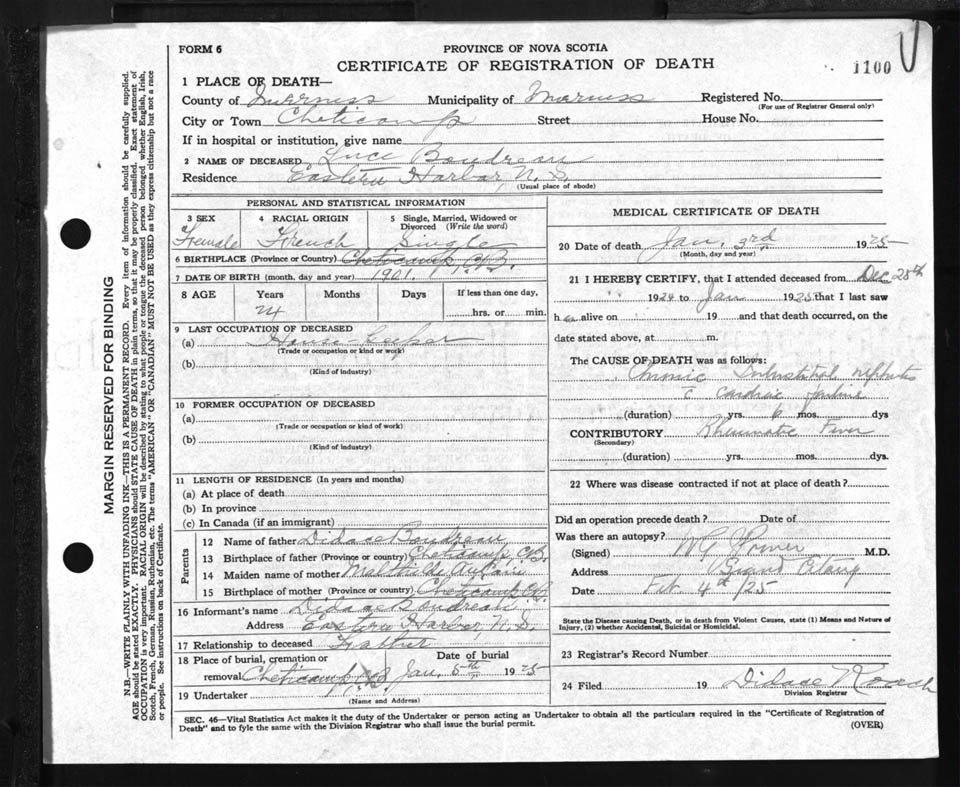 FORM 6
PROVINCE OF NOVA SCOTIA
CERTIFICATE OF REGISTRATION OF DEATH
1100
1 PLACE OF DEATH—
County of Inverness Municipality of Inverness Registered No.
(For use of Registrar General only)
City or Town Cheticamp Street House No.
If in hospital or institution, give name
2 NAME OF DECEASED Luce Boudreau
Residence Eastern Harbor, N. S.
(Usual place of abode)
PERSONAL AND STATISTICAL INFORMATION
3 SEX 4 RACIAL ORIGIN 5 Single, Married, Widowed or Divorced (Write the word)
Female French Single
6 BIRTHPLACE (Province or Country) Cheticamp, C.B.
7 DATE OF BIRTH (month, day and year) 1901
8 AGE Years Months Days If less than one day,
24 hrs. or min.
9 LAST OCCUPATION OF DECEASED
(a) House keeper
(Trade or occupation or kind or work)
(b)
(Kind of industry)
10 FORMER OCCUPATION OF DECEASED
(a)
(Trade or occupation or kind or work)
(b)
(Kind of industry)
11 LENGTH OF RESIDENCE (In years and months)
(a) At place of death
(b) In province
(c) In Canada (if an immigrant)
Parents
12 Name of father Didace Boudreau
13 Birthplace of father (Province or country) Cheticamp C.B.
14 Maiden name of mother Mathilde
15 Birthplace of mother (Province or country) Cheticamp C.B.
16 Informant's name Didace Boudreau
Address Eastern Harbor, N. S.
17 Relationship to deceased Father
18 Place of burial, cremation or removal Date of burial
Cheticamp C.B. Jan. 5th 1925
19 Undertaker
(Name and Address)
MEDICAL CERTIFICATE OF DEATH
20 Date of death Jan. 3rd 1925
(Month, day and year)
21 I HEREBY CERTIFY, that I attended deceased from Dec 25th
1924 to Jan 1925 that I last saw
h er alive on 19 and that death occurred, on the
date stated above, at m.
The CAUSE OF DEATH was as follows:
Chronic Interstitial nephritis
c cardiac failure
(duration) yrs. 6 mos. dys
CONTRIBUTORY Rheumatic Fever
(Secondary)
(duration) yrs. mos. dys.
22 Where was disease contracted if not at place of death?
Did an operation precede death? Date of
Was there an autopsy?
(Signed) M.D.
Address Grand Etang
Date Feb. 4th /25
State the Disease causing Death, or in death from Violent Causes, state (1) Means and Nature of
Injury, (2) whether Accidental, Suicidal or Homicidal.
23 Registrar's Record Number
24 Filed 19 Didace Roach
Division Registrar
SEC. 46—Vital Statistics Act makes it the duty of the Undertaker or person acting as Undertaker to obtain all the particulars required in the "Certificate of Registration of
Death" and to fyle the same with the Division Registrar who shall issue the burial permit.
(OVER)
MARGIN RESERVED FOR BINDING
N.B.—WRITE PLAINLY WITH UNFADING INK—THIS IS A PERMANENT RECORD. Every item of information should be carefully supplied.
AGE should be stated EXACTLY. PHYSICIANS should STATE CAUSE OF DEATH in plain terms, so that it may be properly classified. Exact statement of
OCCUPATION is very important. RACIAL ORIGIN will be described by stating to what people or tongue the deceased person belonged whether English, Irish,
Scotch, French, German, Russian, Ruthenian, etc. The terms "AMERICAN" or "CANADIAN" MUST NOT BE USED as they express citizenship but not a race
or people. See instructions on back of Certificate.